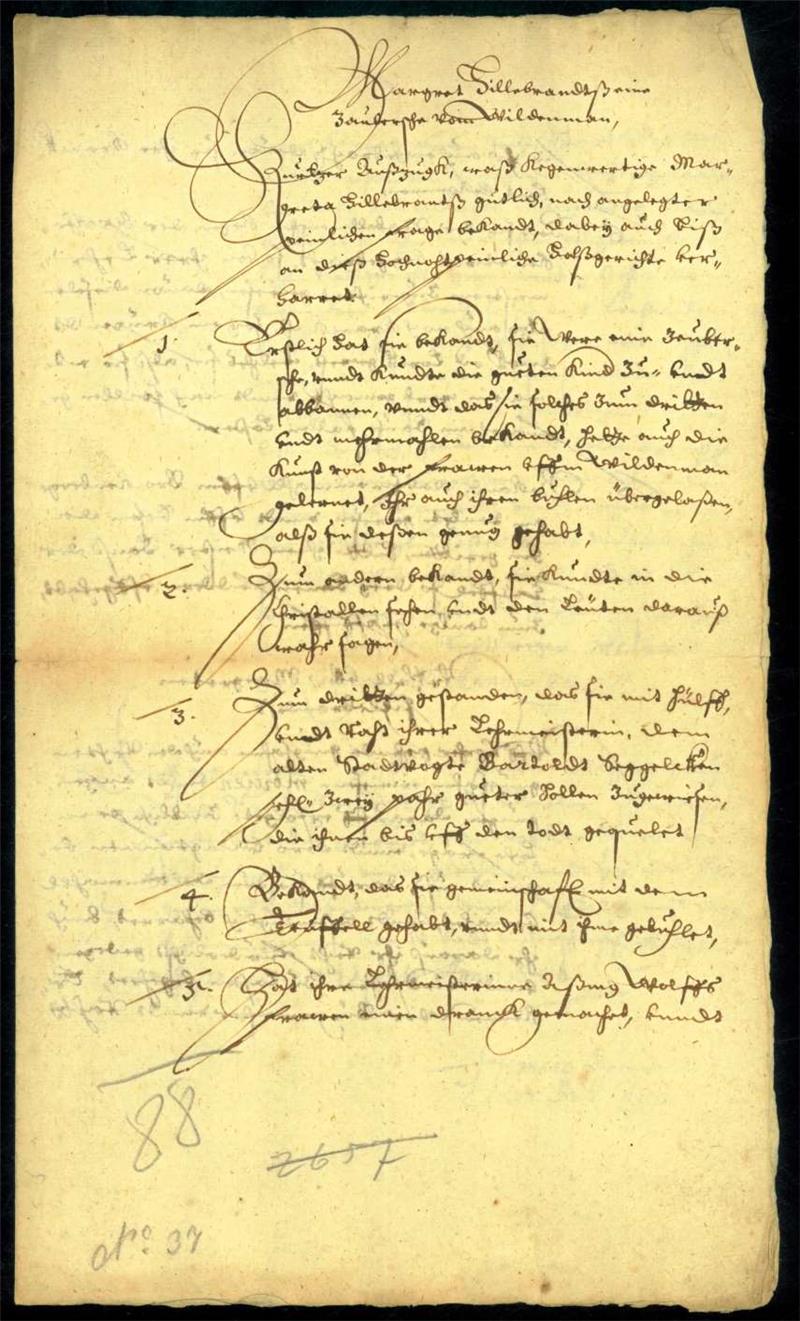 Margret Hillebrandtß eine
Zaubersche vom Wildenman,
Kurtzer Außzugk, waß kegenwertige Mar-
greta Hillebrantß gutlich, nach angelegter
peinlichen frage bekandt, dabey auch biß
an dieß hochnothpeinliche Halßgerichte ver-
harret.
1. Erstlich hat sie bekandt, sie were eine Zauber-
sche, undt kundte die gueten Kind zu- undt
abbannen, undt das sie solches zum dritten
undt mehrmahlen bekandt, hette auch die
Kunst von der frawen uffm Wildenman
gelernet, ihr auch ihren buhlen übergelaßen,
alß sie deßen genug gehabt,
2. Zum andern bekandt, sie kundte in die
Christallen sehen, undt den Leuten darauß
wahr sagen,
3. Zum dritten gestanden, das sie mit hülff,
undt Raht ihrer Lehrmeisterin, dem
alten Stadtvogte Bartoldt Seggelcken
sehl. zwey pahr gueter Hollen zugewiesen,
die ihnen bis uff den todt gequelet
4. Bekandt, das sie gemeinschaft mit dem
Teuffell gehabt, undt mit ihme gebuhlet,
5. Hat ihre Lehrmeisterinne Wolffs
frawen einen dranck gemachet, undt
88
2657
No 37